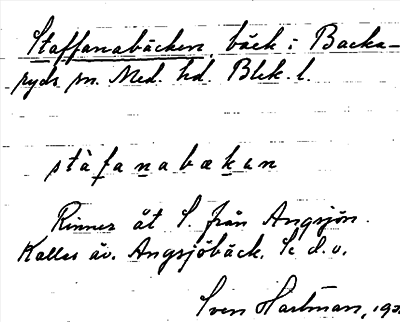 Staffanabäcken, bäck i Backa-
ryds sn. Med. hd. Blek. l.
stàfanabækən
Rinner åt S. från Angsjön.
Kallas äv. Angsjöbäck. Se d.o.
Sven Hartman, 19